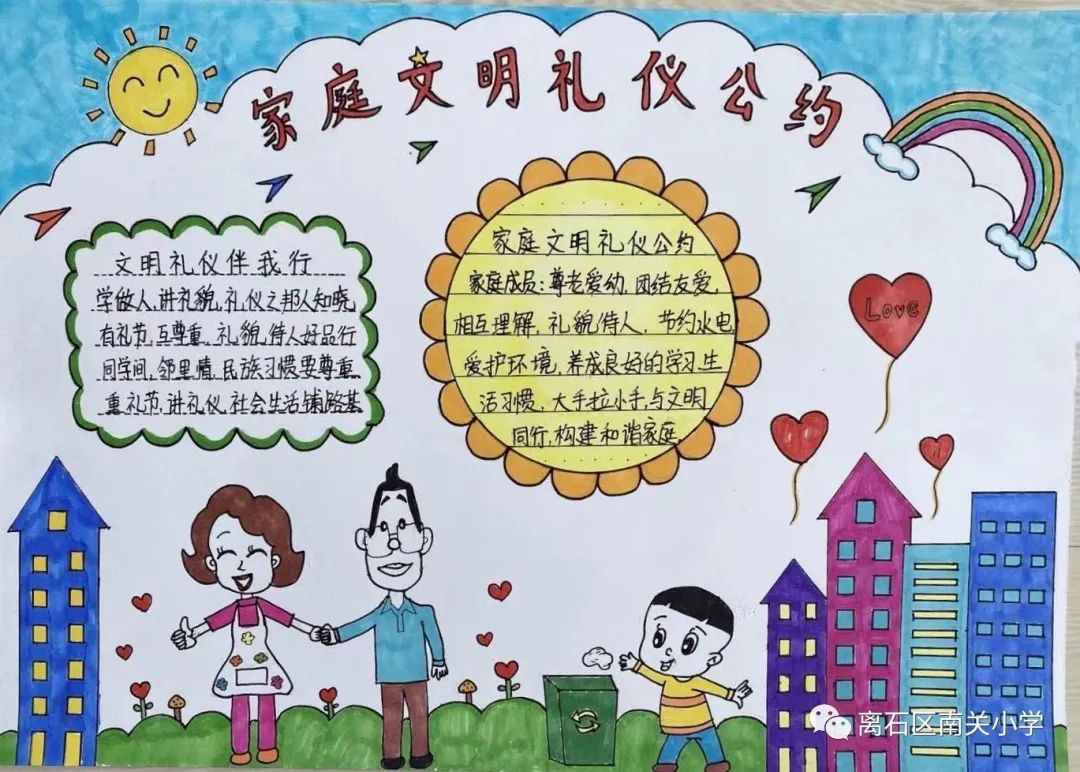 家庭文明礼仪公约
文明礼仪伴我行
学做人,讲礼貌,礼仪之邦人知晓
有礼节,互尊重,礼貌待人好品行
同学间,邻里情,民族习惯要尊重
重礼节,讲礼仪,社会生活铺路基
家庭文明礼仪公约
家庭成员:尊老爱幼,团结友爱,
相互理解,礼貌待人,节约水电
爱护环境,养成良好的学习生
活习惯,大手拉小手,与文明
同行,构建和谐家庭.
Love
离石区南关小学